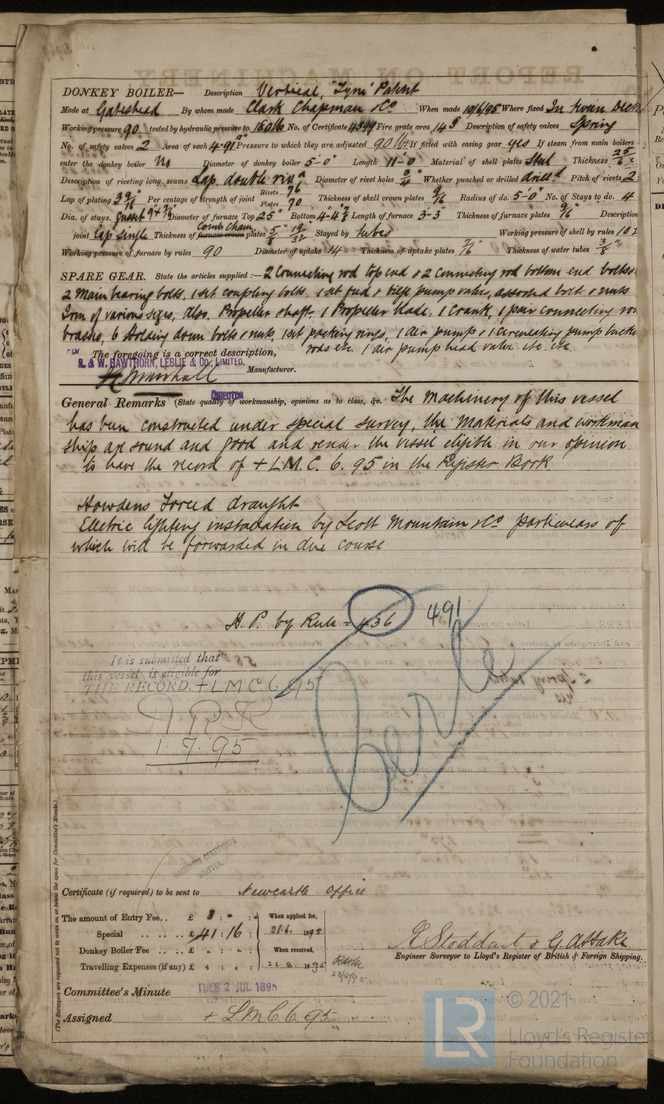 DONKEY BOILER— Description Vertical, "Tyne" Patent
Made at Gateshead By whom made Clark Chapman & Co When made 10/6/95 Where fixed In tween Decks
Working pressure 90 tested by hydraulic pressure to 180 lb No. of Certificate Fire grate area 14 Description of safety valves Spring
No. of safety valves 2 Area of each 4.91 Pressure to which they are adjusted 90 lb If fitted with easing gear yes If steam from main boilers
enter the donkey boiler No Diameter of donkey boiler 5-0" Length 11-0" Material of shell plates Steel Thickness
Description of riveting long. seams Lap double riv Diameter of rivet holes Whether punched or drilled drilled Pitch of rivets 2
Lap of plating Per centage of strength of joint Rivets 76 Plates 70 Thickness of shell crown plates 9/16 Radius of do. 5-0" No. of Stays to do. 4
Dia. of stays. Gusset Diameter of furnace Top 25" Bottom Length of furnace 3-3 Thickness of furnace plates 9/16 Description
joint Lap single Thickness of furnace crown plates Comb Cham Stayed by tubes Working pressure of shell by rules 107
Working pressure of furnace by rules 90 Diameter of uptake 14 Thickness of uptake plates 7/16 Thickness of water tubes 3/8"
SPARE GEAR. State the articles supplied :— 2 Connecting rod top end & 2 Connecting rod bottom end bolts
2 Main bearing bolts, 1 set coupling bolts, 1 set feed & bilge pump valves, assorted bolts & nuts
Iron of various sizes, also, Propeller shaft, 1 Propeller blade, 1 Crank, 1 pair connecting rod
brasses, 6 Holding down bolts & nuts, 1 set packing rings, 1 Air pump & 1 Circulating pump bucket
rods etc 1 air pump head valve etc etc
The foregoing is a correct description,
R. & W. HAWTHORN, LESLIE & Co., LIMITED, Manufacturer.
DIRECTOR
General Remarks (State quality of workmanship, opinions as to class, &c. The Machinery of this vessel
has been constructed under special survey, the materials and workman
ship are sound and good and render the vessel eligible in our opinion
to have the record of + L.M.C. 6. 95 in the Register Book
Howdens Forced draught
Electric lighting installation by Scott Mountain & Co particulars of
which will be forwarded in due course
H. P. by Rule = 436 491
It is submitted that
this vessel is eligible for
THE RECORD. + LMC 6 95
1. 7. 95
Certificate (if required) to be sent to Newcastle Office
The amount of Entry Fee.. £ 3 : - : When applied for,
Special £ 41 : 16 : 28.6. 1895
Donkey Boiler Fee £ When received,
Travelling Expenses (if any) £ 1895
K Stoddart & G. Abbake
Engineer Surveyor to Lloyd's Register of British & Foreign Shipping.
Committee's Minute TUES 2 JUL 1895
Assigned + LMC 6 95
(The Surveyors are requested not to write on or below the space for Committee's Minute.)
LR © 2021
Lloyd's Register
Foundation